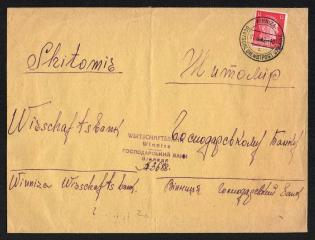 Shitomir
Житомір
Wirschaftsbank
Господарському Банку
WIRTSCHAFTSBANK
Winniza
ГОСПОДАРСЬКИЙ БАНК
Winniza Wirschaftsbank
Вінниця Господарский Банк